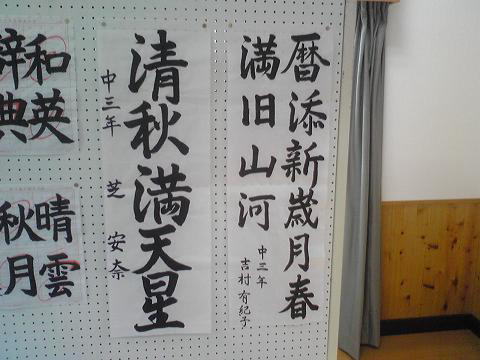 暦添新歳月春
満旧山河
中三年
吉村有紀子
清秋満天星
中三年 芝 安奈
和英
辞典
晴雲
秋月